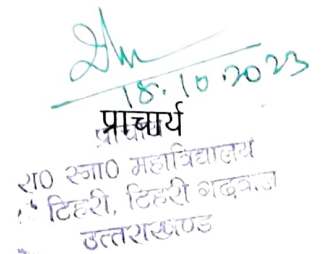 18.10.2023
प्राचार्य
रा0 स्ना0 महाविद्यालय
टिहरी, टिहरी गढ़वाल
उत्तराखण्ड